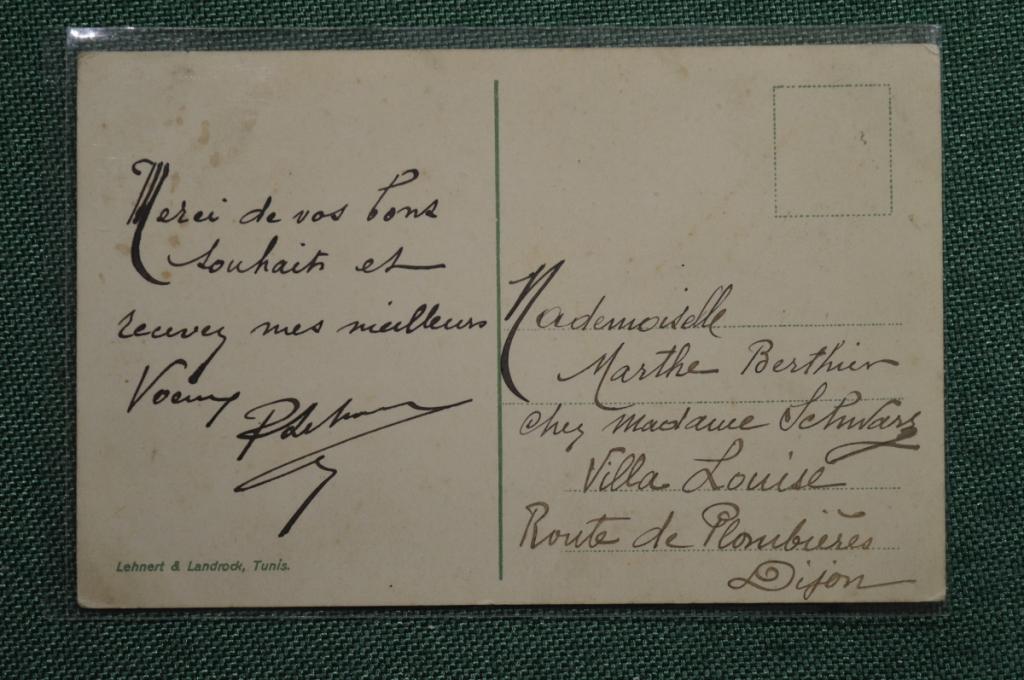 Merci de vos bons
souhaits et
recevez mes meilleurs
Voeux
Lehnert & Landrock, Tunis.
Mademoiselle
Marthe Berthier
chez Madame Schwarz
Villa Louise
Route de Plombières
Dijon